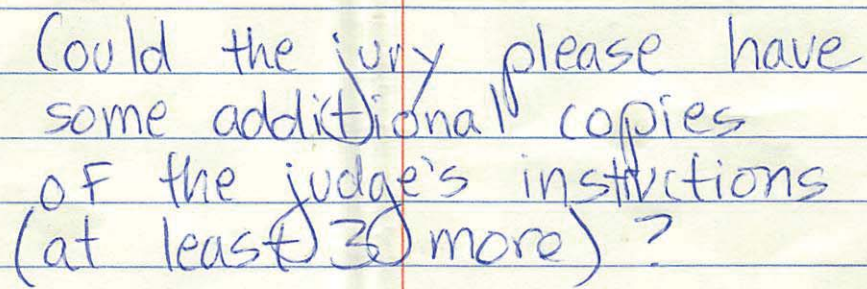 Could the jury please have
some additional copies
of the judge's instructions
(at least 3 more)?